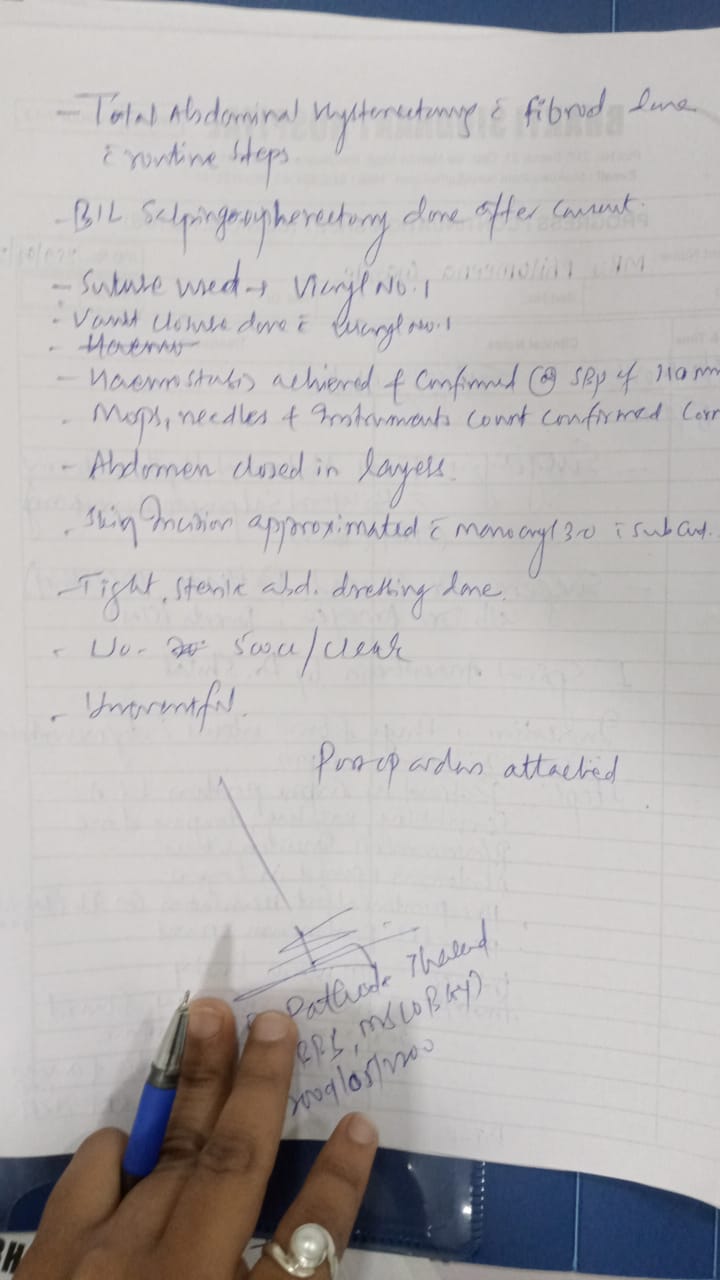 - Total Abdominal Hysterectomy c̄ fibroid done
c̄ routine steps
- B/L Salpingoopherectomy done after consent.
- Suture used → Vicryl No. 1
- Vault closure done c̄ vicryl no. 1
- Haemo
- Haemostasis achieved & Confirmed @ SBP of 110 mm
- Mops, needles & Instruments count confirmed Corr
- Abdomen closed in layers.
- Skin Incision approximated c̄ monocryl 3-0 subcut.
- Tight, sterile abd. dressing done.
- 500cc/clear
- Uneventful.
Postop orders attached
MS (OBGY)